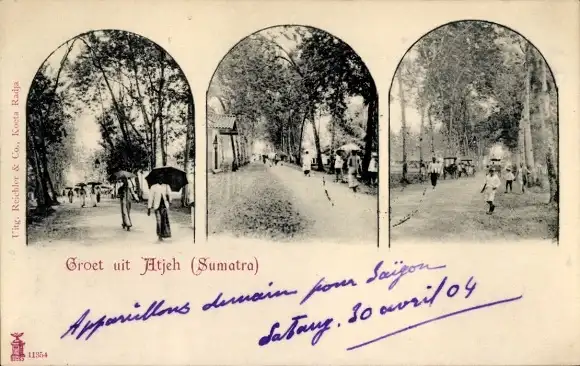 Uitg. Reichler & Co., Koeta Radja
Groet uit Atjeh (Sumatra)
Appareillons demain pour Saïgon
Sabang, 30 avril 04
11354